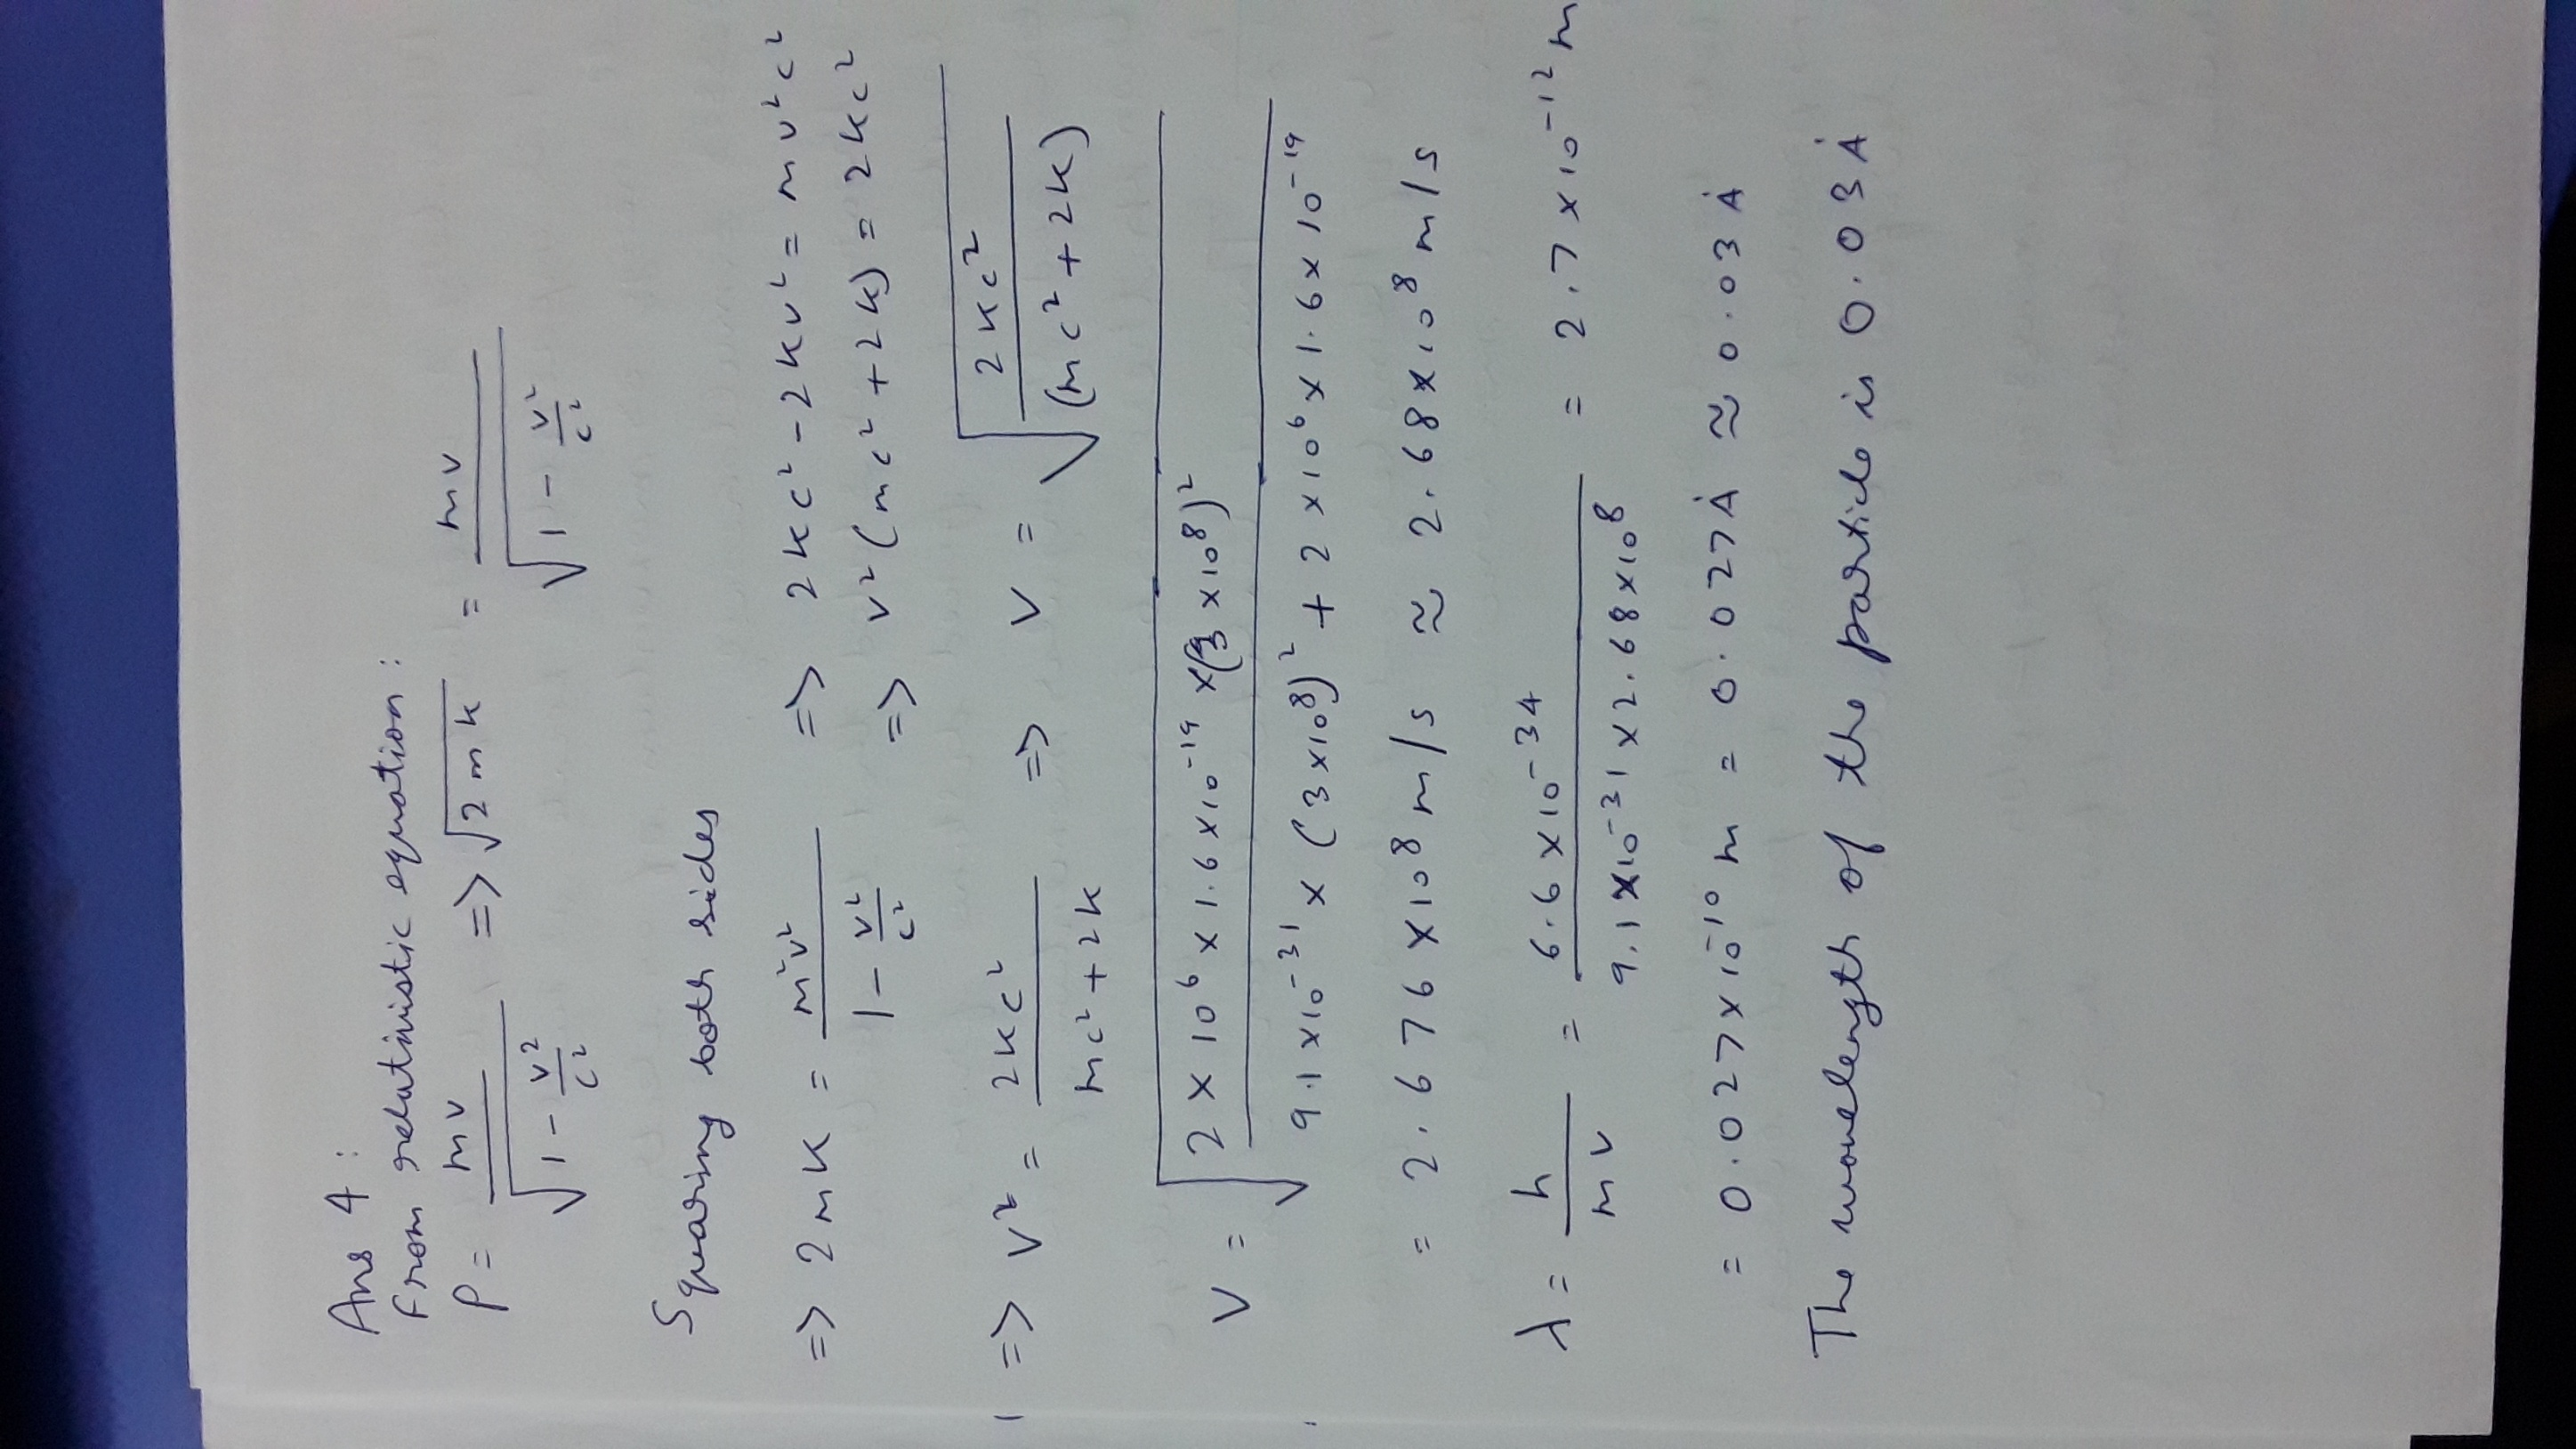 Ans 4 :
From relativistic equation :
P = mv / √(1 - v²/c²) => √2mK = mv / √(1 - v²/c²)
Squaring both sides
=> 2mK = m²v² / (1 - v²/c²) => 2Kc² - 2Kv² = mv²c²
=> v²(mc² + 2K) = 2Kc²
=> v² = 2Kc² / mc² + 2K => v = √(2Kc² / (mc² + 2K))
v = √(2 × 10⁶ × 1.6 × 10⁻¹⁹ × (3 × 10⁸)² / 9.1 × 10⁻³¹ × (3 × 10⁸)² + 2 × 10⁶ × 1.6 × 10⁻¹⁹)
= 2.676 × 10⁸ m/s ≈ 2.68 × 10⁸ m/s
λ = h / mv = 6.6 × 10⁻³⁴ / 9.1 × 10⁻³¹ × 2.68 × 10⁸ = 2.7 × 10⁻¹² m
= 0.027 × 10⁻¹⁰ m = 0.027 Å ≈ 0.03 Å
The wavelength of the particle is 0.03 Å